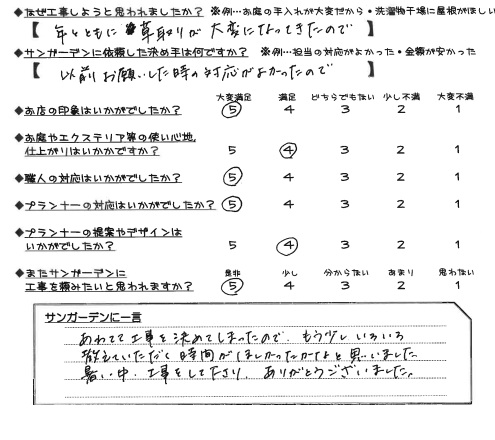 ◆なぜ工事しようと思われましたか？ ※例…お庭の手入れが大変だから・洗濯物干場に屋根がほしい
【 年々ともに 草取りが 大変になってきたので 】
◆サンガーデンに依頼した決め手は何ですか？ ※例…担当の対応がよかった・金額が安かった
【 以前お願いした時の対応がよかったので 】
大変満足 満足 どちらでもない 少し不満 大変不満
◆お店の印象はいかがでしたか？ 5 4 3 2 1
◆お庭やエクステリア等の使い心地、
仕上がりはいかがですか？ 5 4 3 2 1
◆職人の対応はいかがでしたか？ 5 4 3 2 1
◆プランナーの対応はいかがでしたか？ 5 4 3 2 1
◆プランナーの提案やデザインは
いかがでしたか？ 5 4 3 2 1
◆またサンガーデンに 是非 少し 分からない あまり 思わない
工事を頼みたいと思われますか？ 5 4 3 2 1
サンガーデンに一言
あわてて工事を決めてしまったので、もう少しいろいろ
教えていただく時間がほしかったかなと思いました
暑い中、工事をして下さり、ありがとうございました。